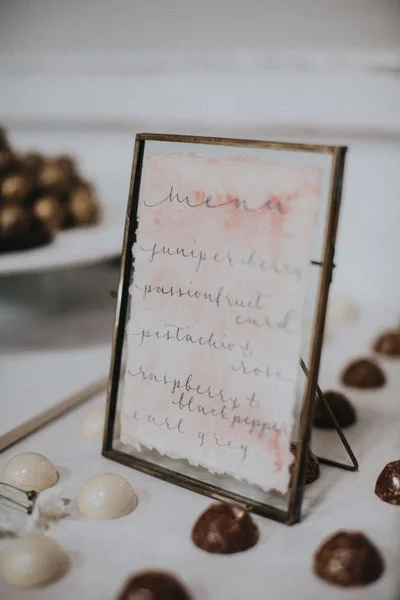 menu
juniper berry
passionfruit
curd
pistachio &
rose
raspberry &
black pepper
earl grey